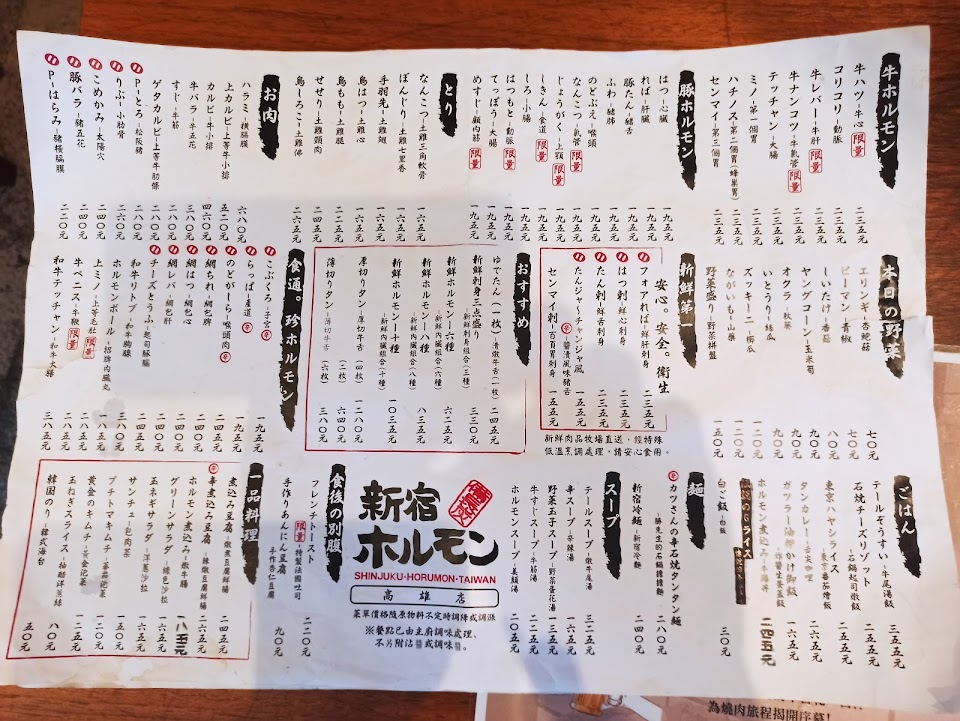 牛ホルモン
牛ハツ－牛心 限量 二三五元
コリコリ－動脈 二三五元
牛レバー－牛肝 限量 二三五元
牛ナンコツ－牛氣管 限量 二三五元
テッチャン－大腸 二三五元
ミノ－第一個胃 二三五元
ハチノス－第二個胃（蜂巢胃） 二三五元
センマイ－第三個胃 二三五元
豚ホルモン
はつ－心臟 一九五元
ればー－肝臟 一九五元
豚たん－豬舌 一九五元
ふわ－豬肺 一九五元
のどぶえ－喉頭 一九五元
なんこつ－氣管 限量 一九五元
じょうがく－上顎 限量 一九五元
しきん－食道 限量 一九五元
しろ－小腸 一九五元
はつもと－動脈 限量 一九五元
てっぽう－大腸 一九五元
めすじ－顧內筋 限量 一九五元
とり
なんこつ－土雞三角軟骨 一六五元
ぼんじり－土雞七里香 一六五元
手羽先－土雞翅 一六五元
鳥はつ－土雞心 一六五元
鳥もも－土雞腿 二二五元
せせり－土雞頸肉 二四五元
鳥しろこ－土雞佛 二四五元
お肉
ハラミ－橫膈膜 六八〇元
上カルビ－上等牛小排 五二〇元
カルビ－牛小排 四六〇元
牛バラ－牛五花 二八〇元
すじ－牛筋 一八〇元
ゲタカルビ－上等牛肋條 二八〇元
Pとろ－松阪豬 二八〇元
りぶ－小肋骨 二六〇元
こめかみ－太陽穴 二四〇元
豚バラ－豬五花 二四〇元
P－はらみ－豬橫膈膜 二二〇元
本日の野菜
エリンギ－杏鮑菇 七〇元
ピーマン－青椒 七〇元
しいたけ－香菇 八〇元
ヤングコーン－玉米筍 九〇元
オクラ－秋葵 九〇元
いとうり－絲瓜 九〇元
ズッキーニ－櫛瓜 一二〇元
ながいも－山藥 一二〇元
野菜盛り－野菜拼盤 一五〇元
新鮮第一
安心。安全。衛生
フォアれば－鮮肝刺身 二三五元
はつ刺－鮮心刺身 二三五元
たん刺－鮮舌刺身 二三五元
たんジャ～チャンジャ風－醬漬風味豬舌 一五五元
センマイ刺－百百胃刺身 一五五元
新鮮肉品牧場直送，經特殊
低溫烹調處理，請安心食用。
おすすめ
ゆでたん（一枚）－清燉牛舌（一枚） 二四五元
新鮮刺身三点盛り－新鮮刺身組合（三種） 三三〇元
新鮮ホルモン－六種－新鮮內臟組合（六種） 六二五元
新鮮ホルモン－八種－新鮮內臟組合（八種） 八三五元
新鮮ホルモン－十種－新鮮內臟組合（十種） 一〇三五元
厚切りタン－厚切牛舌（四枚） 一二八〇元
薄切りタン－薄切牛舌（六枚） 六四〇元
薄切りタン－薄切牛舌（六枚） 三八〇元
食通。珍ホルモン
こぶくろ－子宮 一九五元
らっぱ－產道 一九五元
のどがしら－喉頭肉 一九五元
網ちれ－網包脾 二四五元
網はつ－網包心 二四五元
網レバ－網包肝 二四五元
チーズとうふ－起司豚腦 二四五元
和牛リトップ－和牛胸腺 三八〇元
ホルモンボール－招牌內臟丸 一九五元
上ミノ－上等毛肚 限量 三一五元
牛ペニス－牛鞭 限量 二四五元
和牛テッチャン－和牛大腸 三八五元
ごはん
テールぞうすい－牛尾湯飯 三五五元
石焼チーズリゾット－石鍋起司燉飯 二五五元
東京ハヤシライス－東京番茄燴飯 二四五元
タンカレー－舌尖咖哩 一六五元
ホルモン煮込み－牛雜丼 二四五元
白ご飯－白飯 三〇元
麺
カツさんの辛石焼タンタン麺－勝先生的石鍋擔擔麵 二八〇元
新宿冷麺－新宿冷麵 二四五元
スープ
テールスープ－燉牛尾湯 三二五元
辛スープ－辛辣湯 一六五元
野菜玉子スープ－野菜蛋花湯 一五五元
牛すじスープ－牛筋湯 二二五元
ホルモンスープ－美顏湯 二〇五元
新宿
ホルモン
SHINJUKU・HORUMON・TAIWAN
高雄店
菜單價格隨原物料不定時調降或調漲
※餐點已由主廚調味處理、
不另附沾醬或調味醬。
食後の別腹
フレンチトースト 限量－特製法國吐司 二二〇元
手作りあんにん豆腐－手作杏仁豆腐 九〇元
一品料理
煮込み豆腐－燉煮豆腐鮮腸 二四五元
辛煮込み豆腐－辣燉豆腐鮮腸 二四五元
ホルモン煮込み－燉牛腸 一八五元
グリーンサラダ－綠色沙拉 一六五元
玉ネギサラダ－洋蔥沙拉 一六五元
サンチュ－包肉菜 一二五元
プチトマキムチ－蕃茄泡菜 一二〇元
黃金のキムチ－黃金泡菜 一〇〇元
玉ねぎスライス－柚醋洋蔥絲 八〇元
韓国のり－韓式海苔 五〇元
為燒肉旅程揭開序幕！